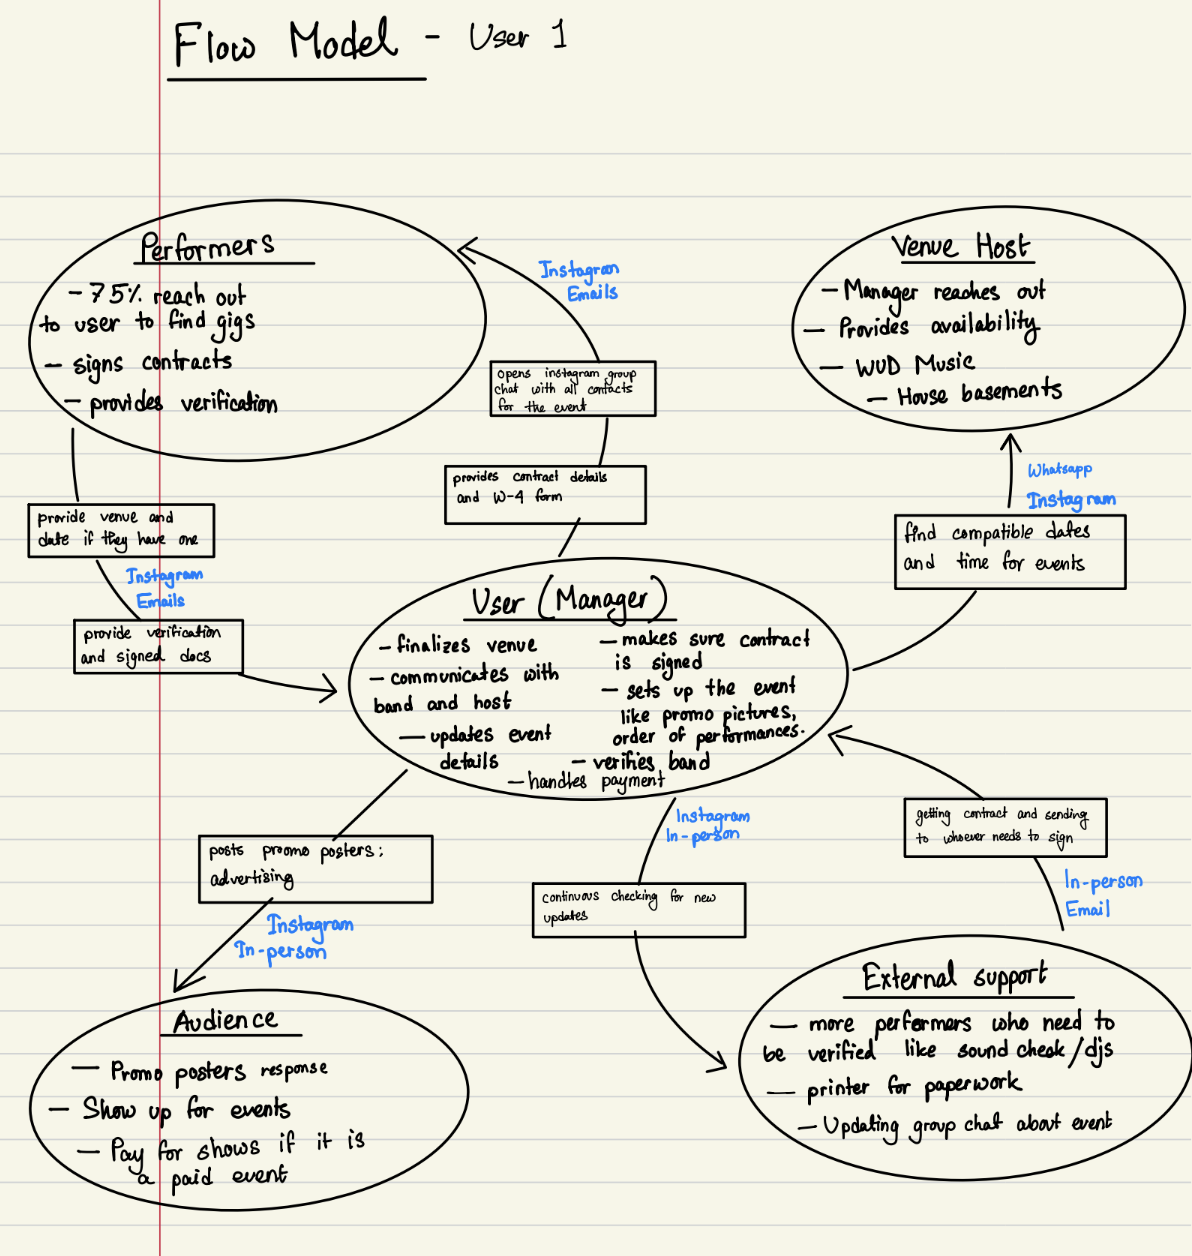 Flow Model - User 1
Performers
- 75% reach out
to user to find gigs
- signs contracts
- provides verification
Instagram
Emails
opens instagram group
chat with all contacts
for the event
provides contract details
and W-4 form
Venue Host
- Manager reaches out
- Provides availability
- WUD Music
- House basements
Whatsapp
Instagram
find compatible dates
and time for events
provide venue and
date if they have one
Instagram
Emails
provide verification
and signed docs
User (Manager)
- finalizes venue
- communicates with
band and host
- updates event
details
- makes sure contract
is signed
- sets up the event
like promo pictures,
order of performances.
- verifies band
- handles payment
posts promo posters;
advertising
Instagram
In-person
Instagram
In-person
continuous checking for new
updates
getting contract and sending
to whoever needs to sign
In-person
Email
Audience
- Promo posters response
- Show up for events
- Pay for shows if it is
a paid event
External support
- more performers who need to
be verified like sound check/djs
- printer for paperwork
- Updating group chat about event